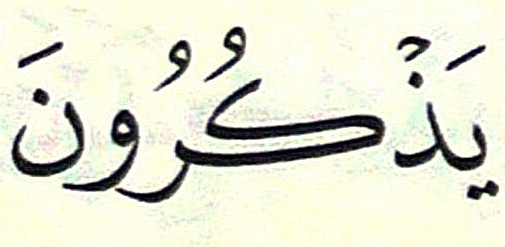 يَذْكُرُونَ